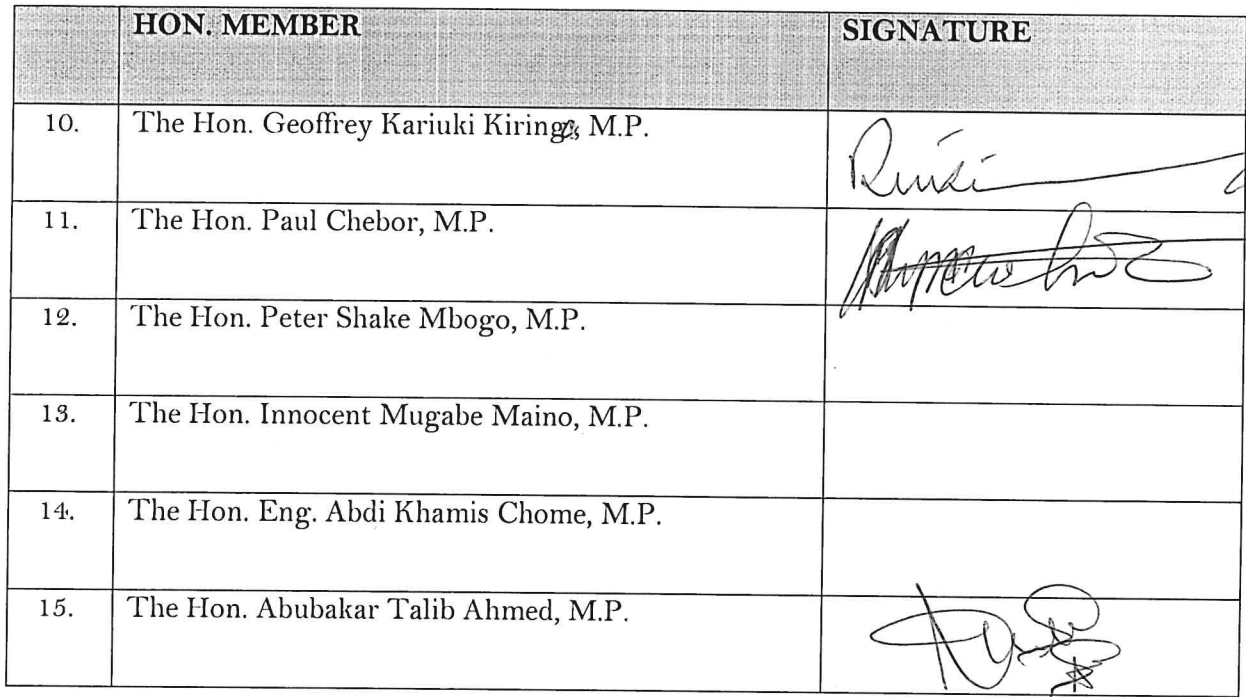 HON. MEMBER SIGNATURE
10. The Hon. Geoffrey Kariuki Kiringa, M.P.
11. The Hon. Paul Chebor, M.P.
12. The Hon. Peter Shake Mbogo, M.P.
13. The Hon. Innocent Mugabe Maino, M.P.
14. The Hon. Eng. Abdi Khamis Chome, M.P.
15. The Hon. Abubakar Talib Ahmed, M.P.